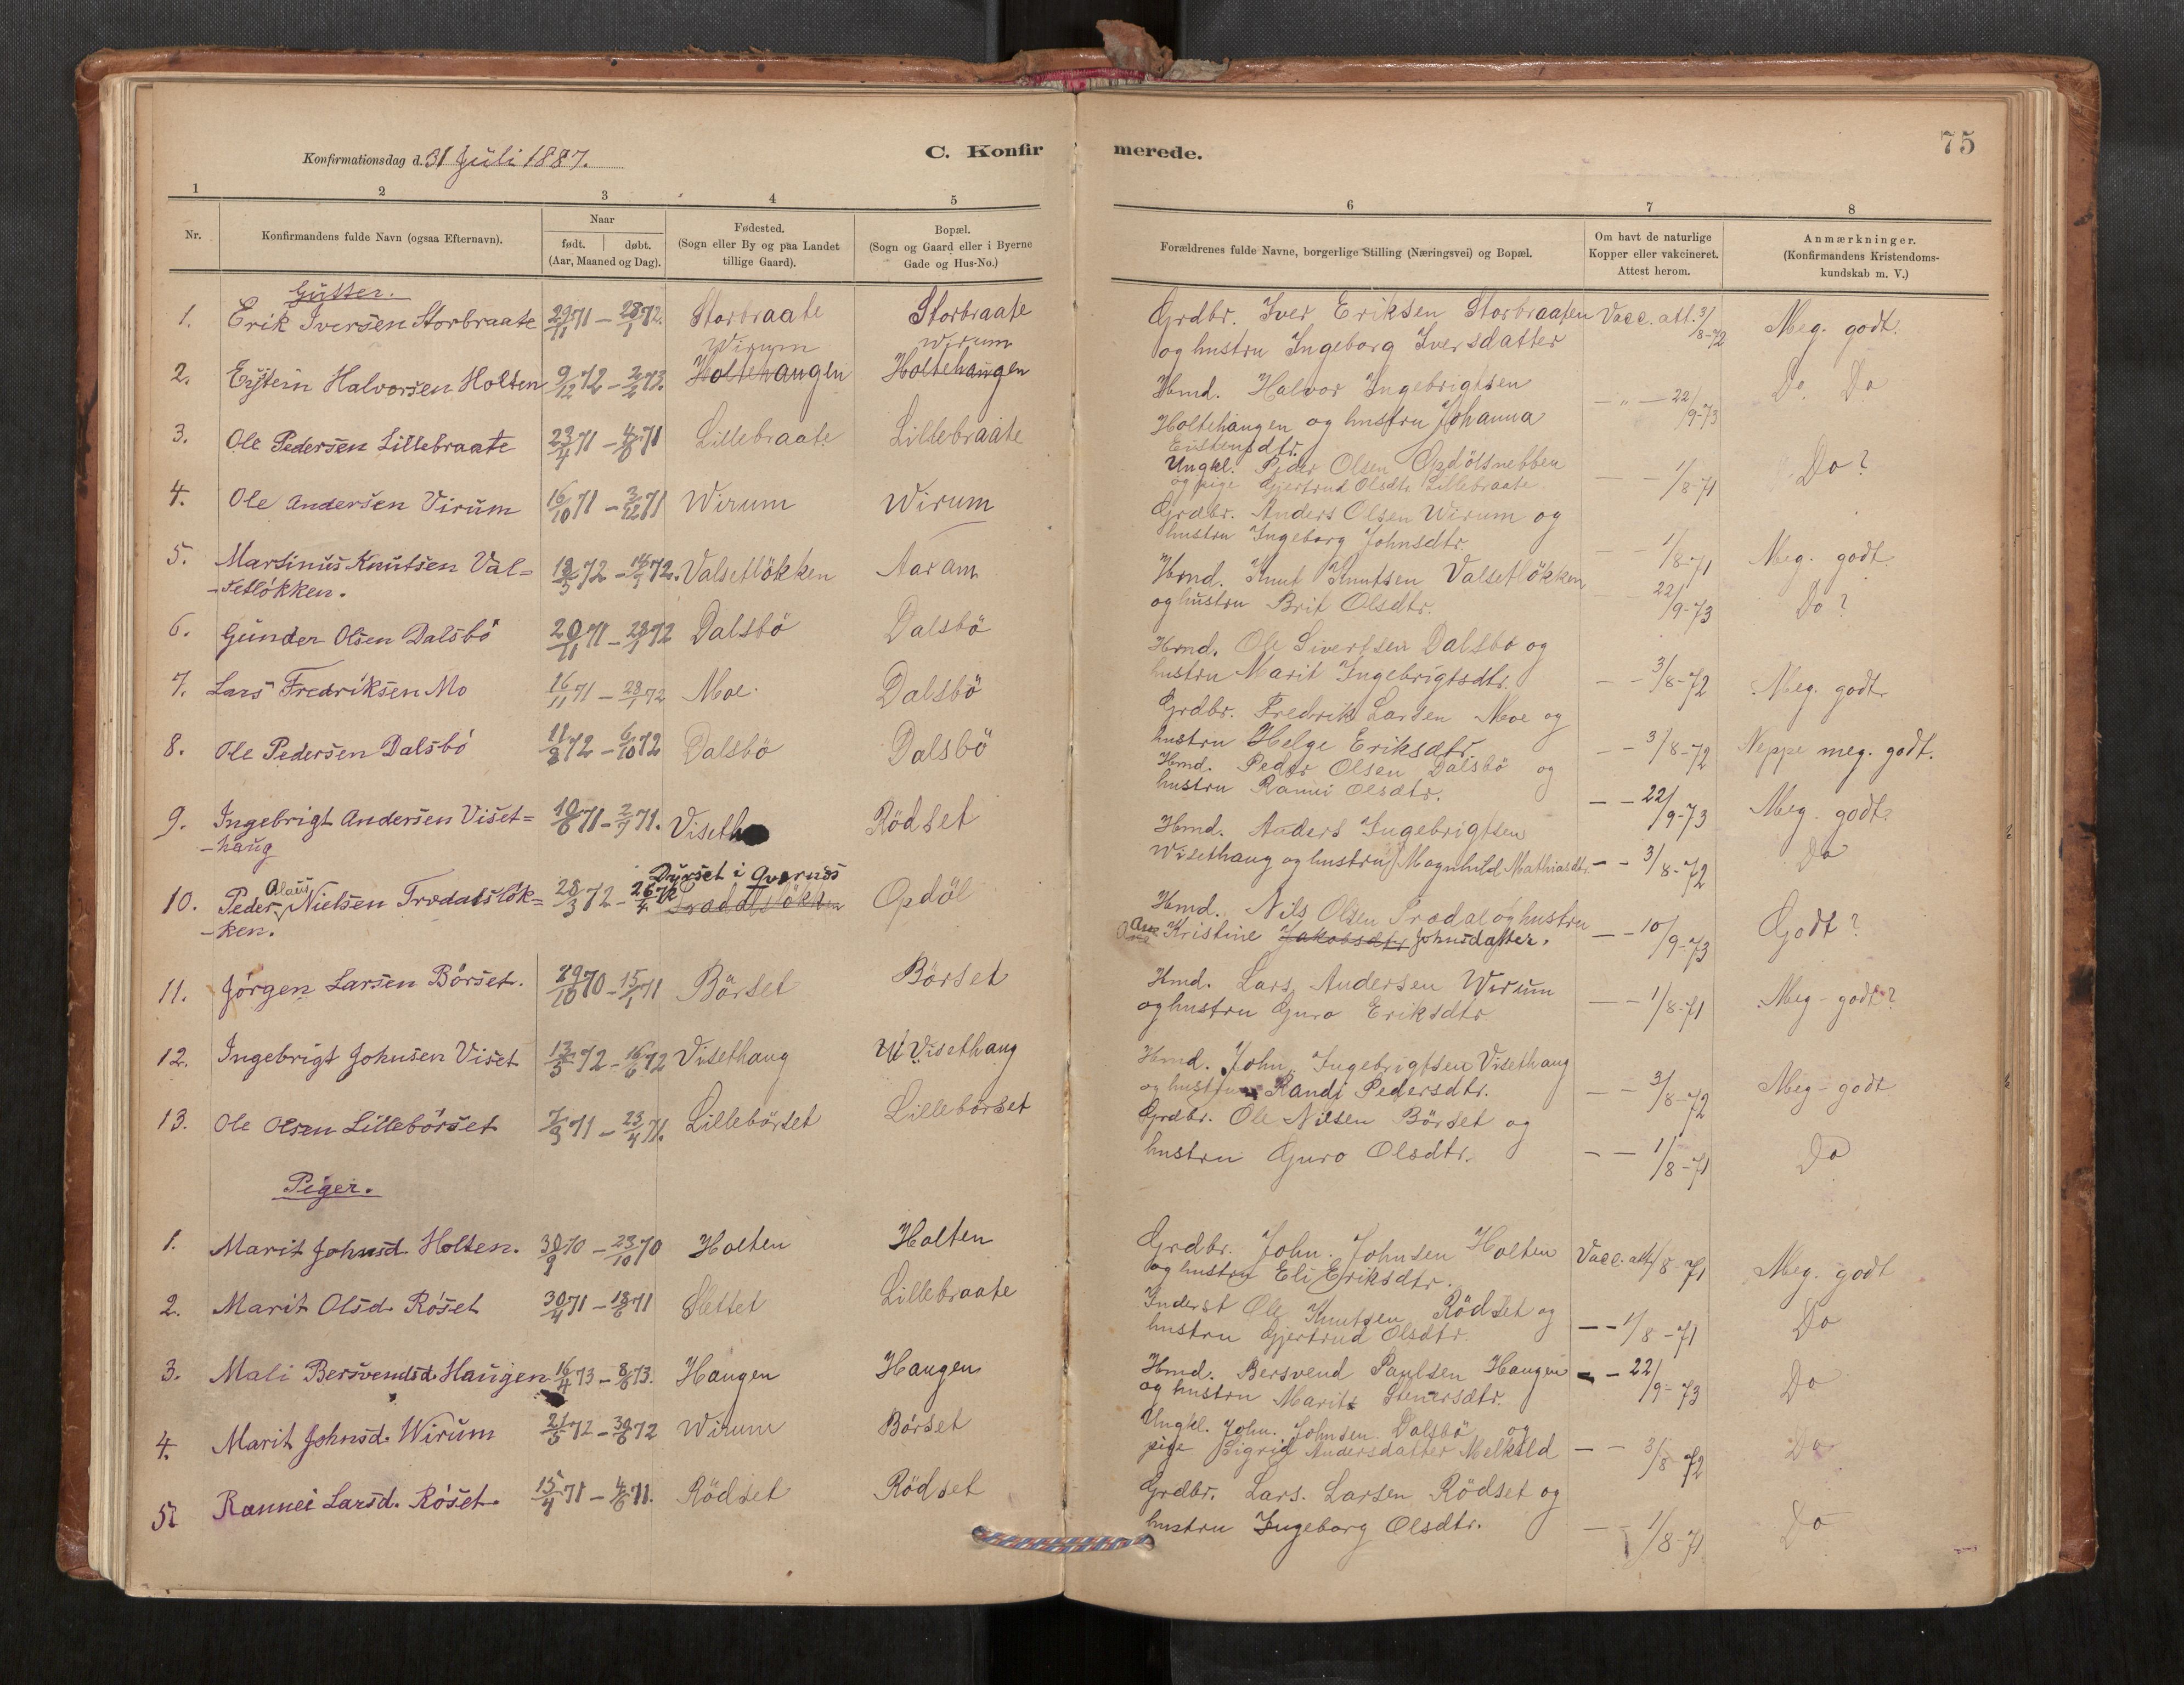 Konfirmationsdag d. 31 Juli 1887.
C. Konfirmerede.
75
1 2 3 4 5 6 7 8
Nr.
Konfirmandens fulde Navn (ogsaa Efternavn).
Naar
født. | døbt.
(Aar, Maaned og Dag).
Fødested.
(Sogn eller By og paa Landet
tillige Gaard).
Bopæl.
(Sogn og Gaard eller i Byerne
Gade og Hus-No.)
Forældrenes fulde Navne, borgerlige Stilling (Næringsvei) og Bopæl.
Om havt de naturlige
Kopper eller vakcineret.
Attest herom.
Anmærkninger.
(Konfirmandens Kristendoms-
kundskab m. V.)
Gutter.
1. Erik Iversen Storbraate 29/11 71 – 28/1 72. Storbraate Storbraate Grdbr. Iver Eriksen Storbraaten Vacc. att. 3/8-72 Meg. godt.
og hustru Ingeborg Iversdatter
Wirum Wirum
2. Eystein Halvorsen Holten 9/12 72 – 2/2 73. Holtehaugen Holtehaugen Hmd. Halvor Ingebrigtsen – " – 22/9-73 Do. Do
Holtehaugen og hustru Johanna
Eistensdtr.
3. Ole Pedersen Lillebraate 23/4 71 – 4/6 71 Lillebraate Lillebraate Ungkl. Peder Olsen Opdölsnebben – – 1/8-71 Do?
og pige Gjertrud Olsdtr Lillebraate
4. Ole Andersen Virum 16/10 71 – 3/12 71 Wirum Wirum Grdbr. Anders Olsen Wirum og
hustru Ingeborg Johnsdtr. – – 1/8-71 Meg. godt
5. Martinus Knutsen Val=
-setløkken. 18/5 72 – 14/7 72. Valsetlökken Aaram Hmd. Knut Knutsen Valsetlökken
og hustru Brit Olsdtr. 22/9-73 Do?
6. Gunder Olsen Dalsbø 20/11 71 – 28/1 72 Dalsbö Dalsbö Hmd. Ole Sivertsen Dalsbö og
hustru Marit Ingebrigtsdtr. – – 3/8-72 Meg. godt
7. Lars Fredriksen Mo 16/11 71 – 28/1 72 Moe. Dalsbö Grdbr. Fredrik Larsen Moe og
hustru Helge Eriksdtr. – – 3/8-72 Neppe meg. godt.
8. Ole Pedersen Dalsbø 11/8 72 – 6/10 72 Dalsbö Dalsbö Hmd. Peder Olsen Dalsbö og
hustru Rannei Olsdtr. – – 22/9-73 Meg. godt?
9. Ingebrigt Andersen Viset=
-haug 10/6 71 – 2/7 71. Viseth Rödset Hmd. Anders Ingebrigtsen
Wisethaug og hustru Magnhild Mathiasdtr. – – 3/8-72 Do
10. Peder Olaus Nielsen Trødalsløk=
-ken. 28/3 72 – 26/4 72 Dyrset i Qvernes Opdöl Hmd. Nils Olsen Trødal og hustru
Ane Kristine Jakobsdtr Johnsdatter. – – 10/9-73 Godt?
11. Jørgen Larsen Børset. 29/10 70 – 15/1 71 Börset Börset Hmd. Lars Andersen Wirum
og hustru Guro Eriksdtr – – 1/8-71 Meg – godt?
12. Ingebrigt Johnsen Viset 13/5 72 – 16/6 72 Visethaug Visethaug Hmd. John Ingebrigtsen Visethaug
og hustru Randi Pedersdtr. – – 3/8-72 Meg – godt
13. Ole Olsen Lillebørset 7/3 71 – 23/4 71. Lillebörset Lillebörset Grdbr. Ole Nilsen Börset og
hustru Guro Olsdtr. – – 1/8-71 Do
Piger.
1. Marit Johnsd. Holten. 30/9 70 – 23/10 70 Holten Holten Grdbr. John. Johnsen Holten Vacc. att. 1/8-71 Meg. godt
og hustru Eli Eriksdtr.
2. Marit Olsd. Røset 30/4 71 – 18/6 71 Slettet Lillebraate Inderst Ole Knutsen Rödset og
hustru Gjertrud Olsdtr. – – 1/8-71 Do
3. Mali Bersvendsd. Haugen 16/4 73 – 8/6 73. Haugen Haugen Hmd. Bersvend Paulsen Haugen – – 22/9-73 Do
og hustru Marit Stenersdtr.
4. Marit Johnsd. Wirum 21/5 72 – 30/6 72 Wirum Börset Ungkl. John. Johnsen Dalsbö og
pige Sigrid Andersdatter Melkild – – 3/8-72 Do
5. Rannei Larsd. Røset. 15/4 71 – 4/6 71. Rödset Rödset Grdbr. Lars. Larsen Rödset og
hustru Ingeborg Olsdtr. – – 1/8-71 Do